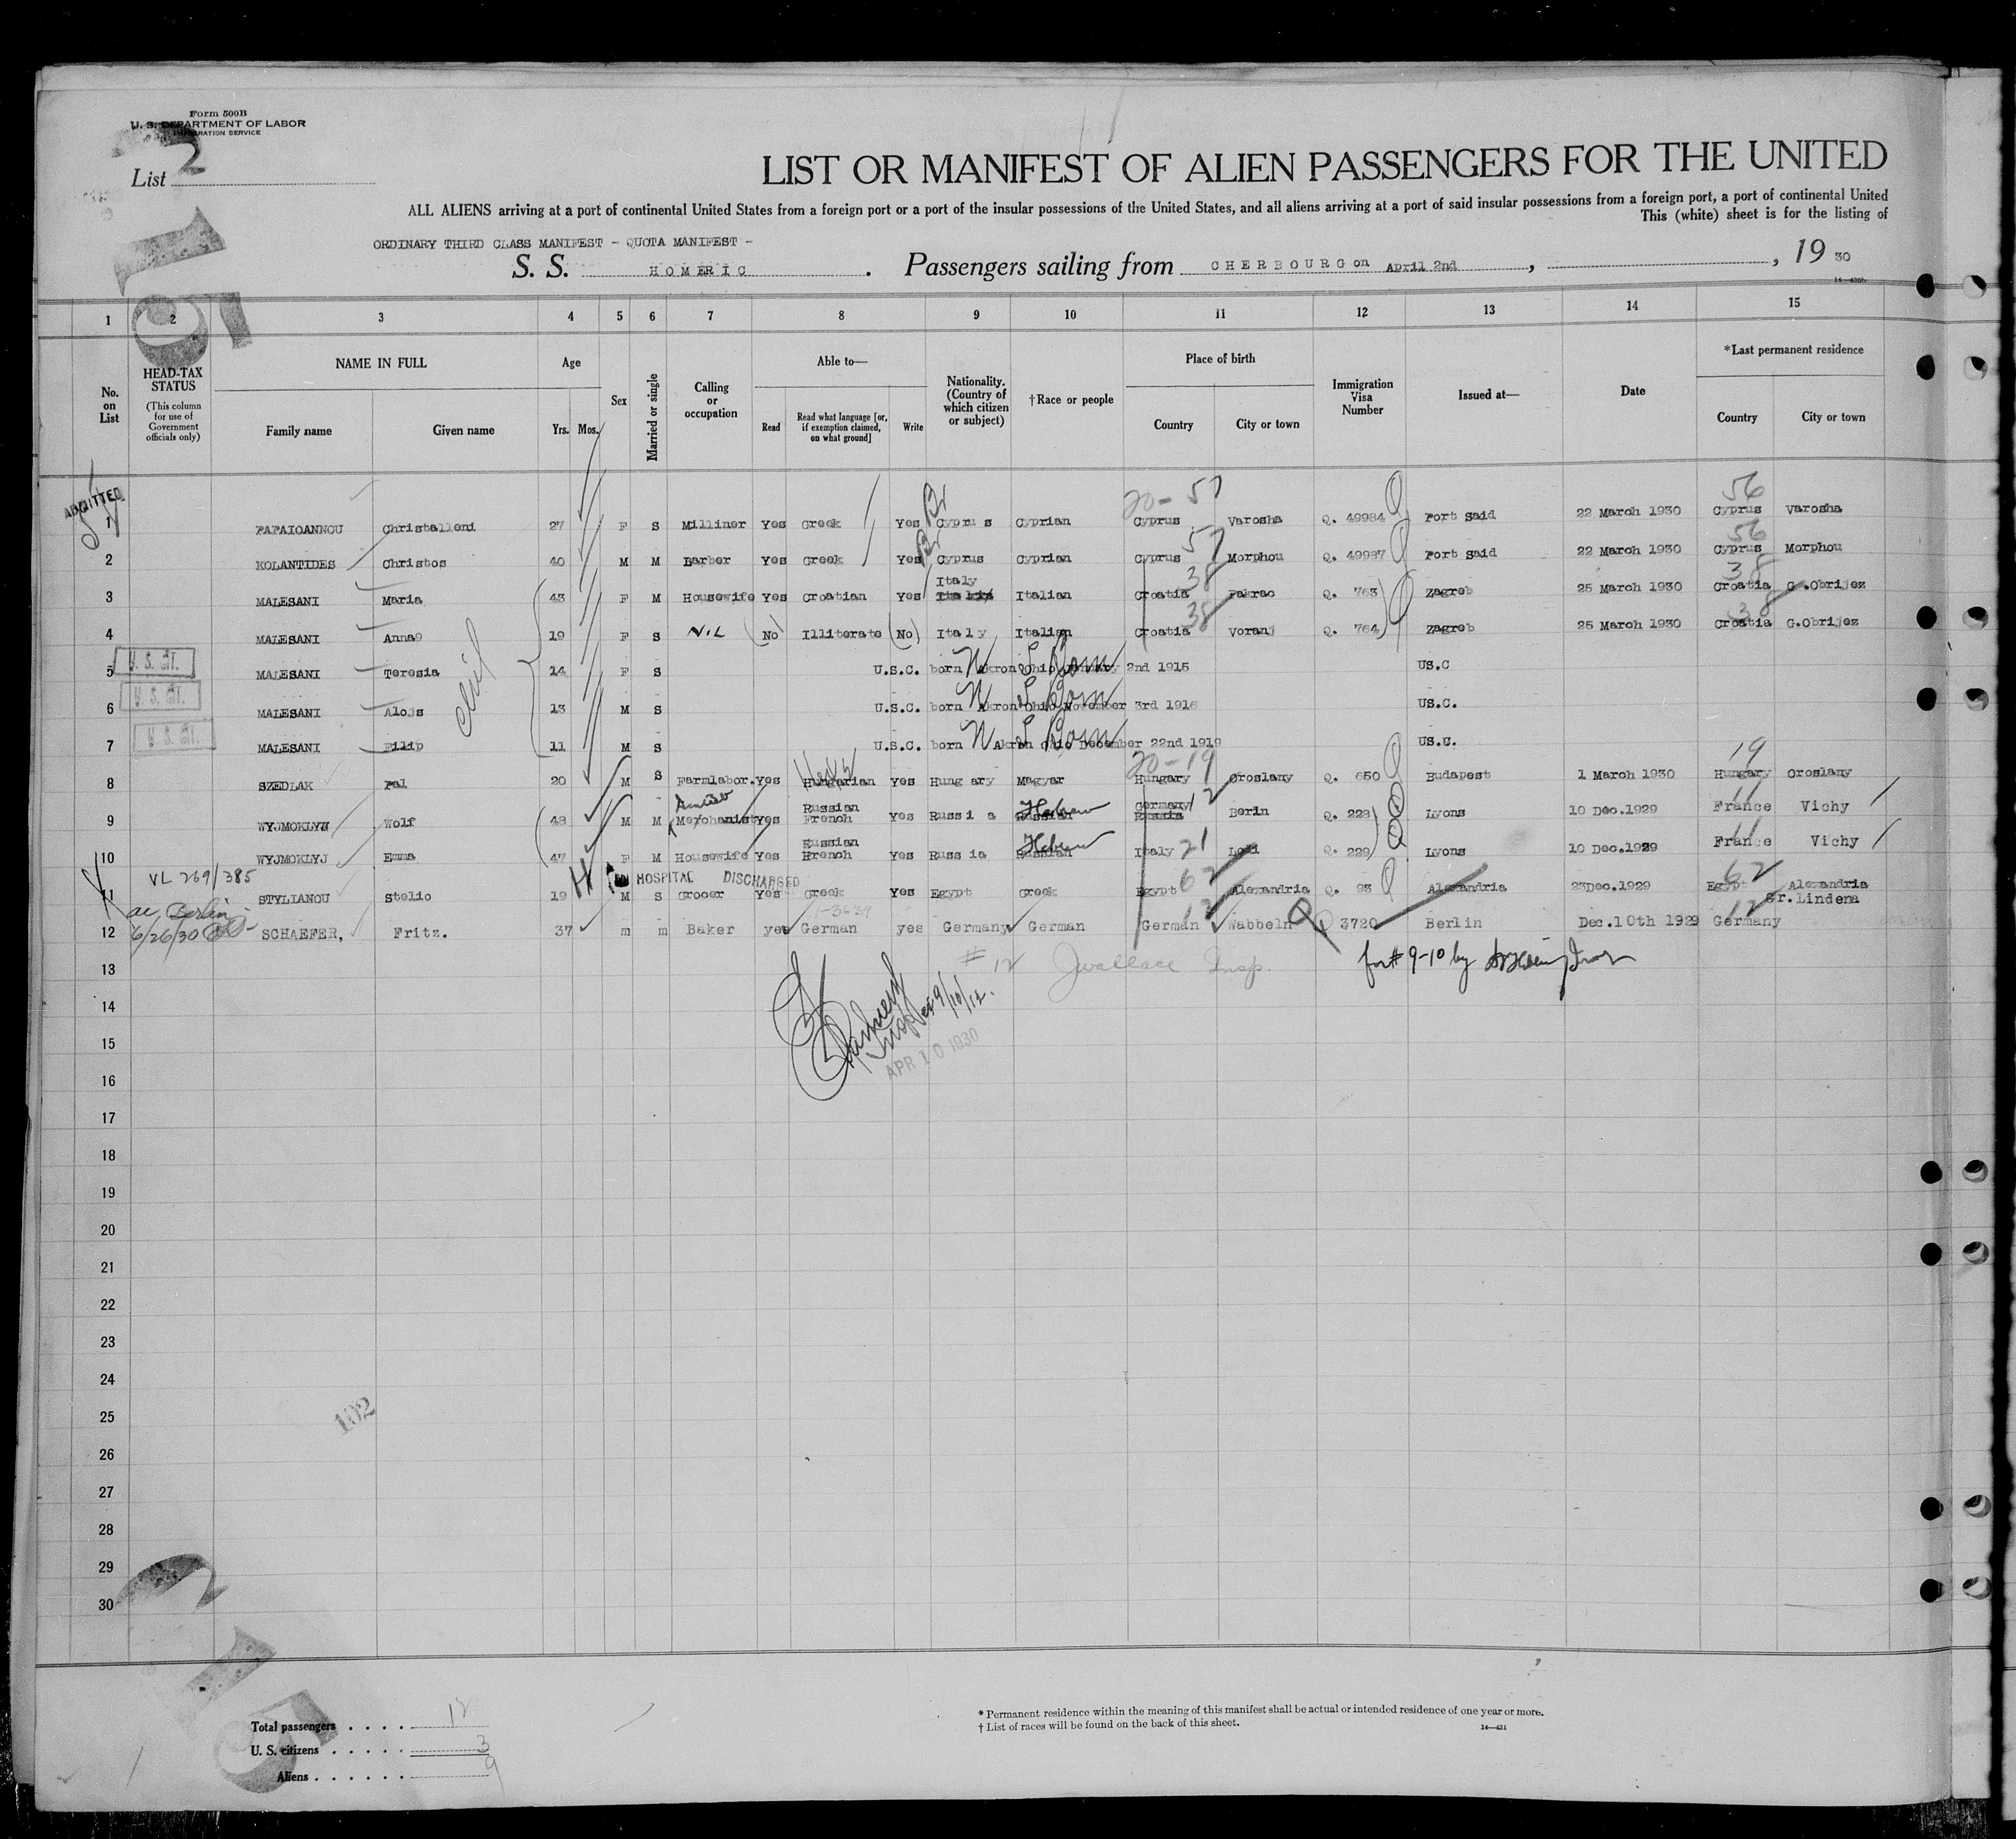 Form 500B
U. S. DEPARTMENT OF LABOR
IMMIGRATION SERVICE
List 2
LIST OR MANIFEST OF ALIEN PASSENGERS FOR THE UNITED
ALL ALIENS arriving at a port of continental United States from a foreign port or a port of the insular possessions of the United States, and all aliens arriving at a port of said insular possessions from a foreign port, a port of continental United
This (white) sheet is for the listing of
ORDINARY THIRD CLASS MANIFEST - QUOTA MANIFEST -
S. S. HOMERIC. Passengers sailing from CHERBOURG on April 2nd, , 19 30
1 2 3 4 5 6 7 8 9 10 11 12 13 14 15
No. on List
HEAD-TAX STATUS
(This column for use of Government officials only)
NAME IN FULL
Family name Given name
Age
Yrs. Mos.
Sex
Married or single
Calling or occupation
Able to—
Read
Read what language [or, if exemption claimed, on what ground]
Write
Nationality. (Country of which citizen or subject)
†Race or people
Place of birth
Country City or town
Immigration Visa Number
Issued at—
Date
*Last permanent residence
Country City or town
ADMITTED
20-57 56
1 PAPAIOANNOU Christalleni 27 F S Milliner Yes Greek Yes Cyprus Cyprian Cyprus Varosha Q. 49984 Port Said 22 March 1930 Cyprus Varosha
57 56
2 KOLANTIDES Christos 40 M M Barber Yes Greek Yes Cyprus Cyprian Cyprus Morphou Q. 49987 Port Said 22 March 1930 Cyprus Morphou
Italy 38 38
3 MALESANI Maria 43 F M Housewife Yes Croatian Yes Italian Croatia Pakrac Q. 763 Zagreb 25 March 1930 Croatia G.Obrijez
38 38
4 MALESANI Anna 19 F S NIL (No) Illiterate (No) Italy Italian Croatia Voranj Q. 764 Zagreb 25 March 1930 Croatia G.Obrijez
U. S. CIT.
5 MALESANI Teresia 14 F S U.S.C. born Akron Ohio January 2nd 1915 US.C
U. S. CIT.
6 MALESANI Alojs 13 M S U.S.C. born Akron Ohio November 3rd 1916 US.C.
U. S. CIT.
7 MALESANI Filip 11 M S U.S.C. born Akron Ohio December 22nd 1919 US.C.
20-19 19
8 SZEDLAK Pal 20 M S Farmlabor. Yes Hungarian Yes Hungary Magyar Hungary Oroslany Q. 650 Budapest 1 March 1930 Hungary Oroslany
Russian Hebrew Germany 12 11
9 WYJMOKLYJ Wolf 48 M M Merchant Yes French Yes Russia Russian Russia Berlin Q. 228 Lyons 10 Dec.1929 France Vichy
Russian Hebrew 21 11
10 WYJMOKLYJ Emma 47 F M Housewife Yes French Yes Russia Russian Italy Lodi Q. 229 Lyons 10 Dec.1929 France Vichy
VL 269/385 IN HOSPITAL DISCHARGED 62 62
11 STYLIANOU Stelio 19 M S Grocer Yes Greek Yes Egypt Greek Egypt Alexandria Q. 93 Alexandria 23Dec.1929 Egypt Alexandria
Berlin 1-3639 12 12 Gr.Lindena
6/26/30
12 SCHAEFER, Fritz. 37 m m Baker yes German yes Germany German German Wabbeln Q 3720 Berlin Dec.10th 1929 Germany
13 # 12 Jwallace Insp. for # 9-10 by
14 9/10/12.
15 APR 10 1930
16
17
18
19
20
21
22
23
24
25 102
26
27
28
29
30
Total passengers . . . . 12
U. S. citizens . . . . . 3
Aliens . . . . . . 9
* Permanent residence within the meaning of this manifest shall be actual or intended residence of one year or more.
† List of races will be found on the back of this sheet. 14—431